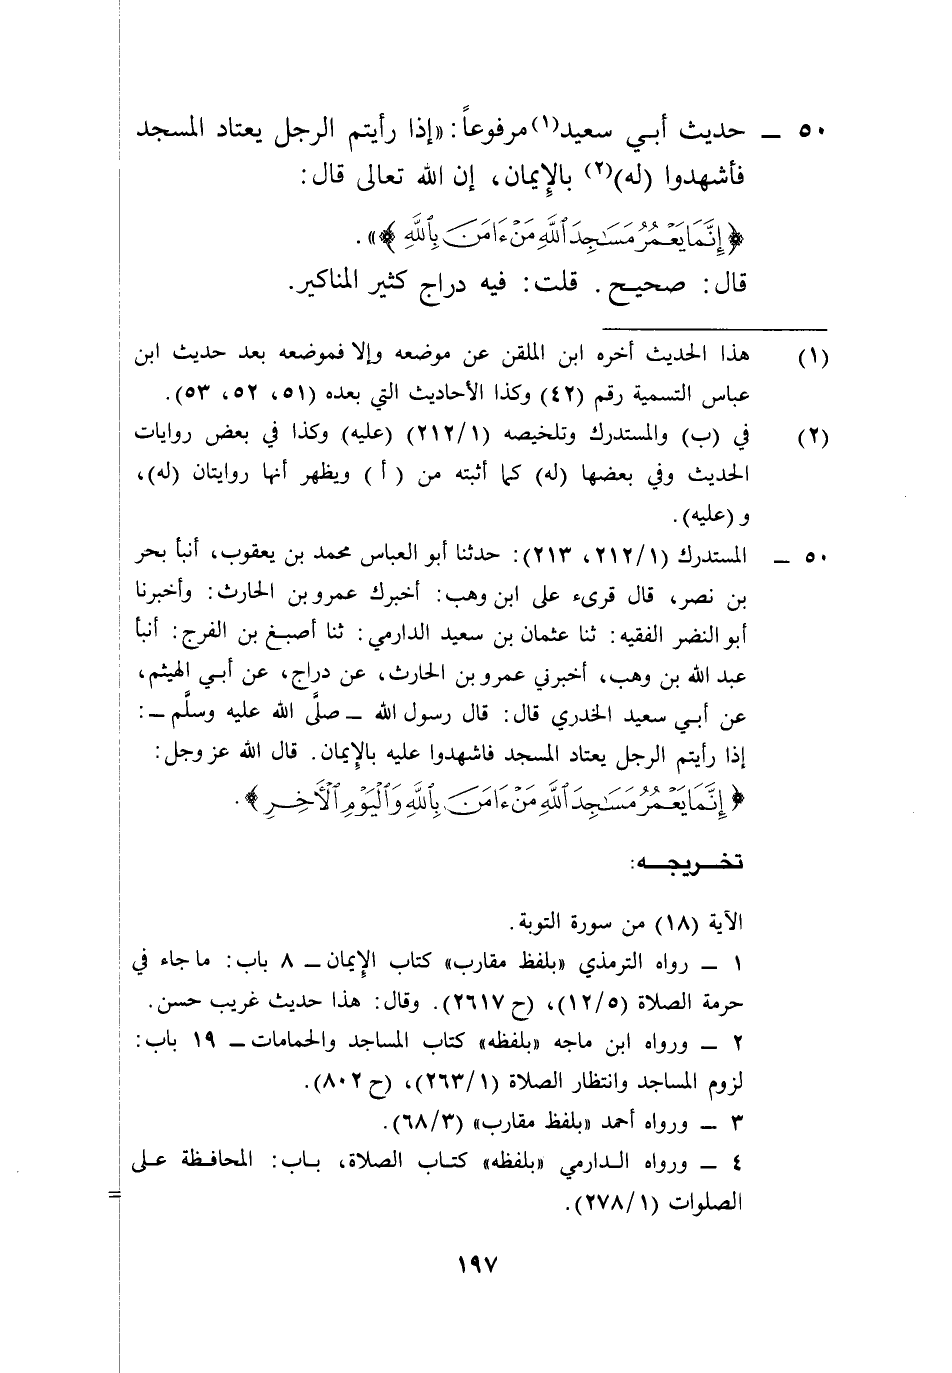 ٥٠ ــ حديث أبـي سعيد(١) مرفوعاً: «إذا رأيتم الرجل يعتاد المسجد
فأشهدوا (له)(٢) بالإِيمان، إن الله تعالى قال:
﴿إِنَّمَا يَعْمُرُ مَسَـٰجِدَ ٱللَّهِ مَنْ ءَامَنَ بِٱللَّهِ﴾».
قال: صحيح. قلت: فيه دراج كثير المناكير.
(١) هذا الحديث أخره ابن الملقن عن موضعه وإلا فموضعه بعد حديث ابن
عباس التسمية رقم (٤٢) وكذا الأحاديث التي بعده (٥١، ٥٢، ٥٣).
(٢) في (ب) والمستدرك وتلخيصه (٢١٢/١) (عليه) وكذا في بعض روايات
الحديث وفي بعضها (له) كما أثبته من (أ) ويظهر أنها روايتان (له)،
و (عليه).
٥٠ ــ المستدرك (٢١٢/١، ٢١٣): حدثنا أبو العباس محمد بن يعقوب، أنبأ بحر
بن نصر، قال قرىء على ابن وهب: أخبرك عمرو بن الحارث: وأخبرنا
أبو النضر الفقيه: ثنا عثمان بن سعيد الدارمي: ثنا أصبغ بن الفرج: أنبأ
عبد الله بن وهب، أخبرني عمرو بن الحارث، عن دراج، عن أبـي الهيثم،
عن أبـي سعيد الخدري قال: قال رسول الله ــ صلَّى الله عليه وسلَّم ــ:
إذا رأيتم الرجل يعتاد المسجد فاشهدوا عليه بالإِيمان. قال الله عز وجل:
﴿إِنَّمَا يَعْمُرُ مَسَـٰجِدَ ٱللَّهِ مَنْ ءَامَنَ بِٱللَّهِ وَٱلْيَوْمِ ٱلْأَخِرِ﴾.
تخـــريجـــه:
الآية (١٨) من سورة التوبة.
١ ــ رواه الترمذي «بلفظ مقارب» كتاب الإِيمان ــ ٨ باب: ما جاء في
حرمة الصلاة (١٢/٥)، (ح ٢٦١٧). وقال: هذا حديث غريب حسن.
٢ ــ ورواه ابن ماجه «بلفظه» كتاب المساجد والحمامات ــ ١٩ باب:
لزوم المساجد وانتظار الصلاة (٢٦٣/١)، (ح ٨٠٢).
٣ ــ ورواه أحمد «بلفظ مقارب» (٦٨/٣).
٤ ــ ورواه الـدارمي «بلفظه» كتـاب الصلاة، بـاب: المحافـظة عـلى
الصلوات (٢٧٨/١).
١٩٧